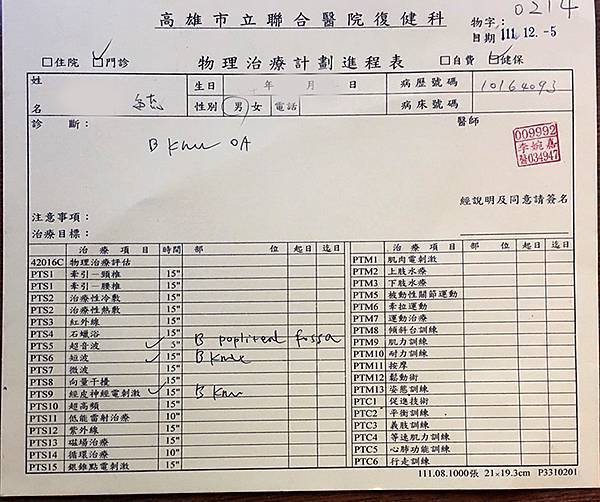 0214
高雄市立聯合醫院復健科
物字：
日期 111. 12. -5
□住院 ☑門診 物理治療計劃進程表 □自費 ☑健保
姓名
生日 年 月 日
病歷號碼 10164093
性別 男 女 電話
病床號碼
診斷：
B knee OA
醫師
009992
李婉嘉
醫034947
經說明及同意請簽名
注意事項：
治療目標：
治療項目 時間 部位 起日 迄日
42016C 物理治療評估
PTS1 牽引—頸椎 15"
PTS1 牽引—腰椎 15"
PTS2 治療性冷敷 15"
PTS2 治療性熱敷 15"
PTS3 紅外線 15"
PTS4 石蠟浴 15"
PTS5 超音波 ✓ 5" B popliteal fossa
PTS6 短波 ✓ 15" B knee
PTS7 微波 15"
PTS8 向量干擾 15"
PTS9 經皮神經電刺激 ✓ 15" B knee
PTS10 超高頻 15"
PTS11 低能雷射治療 10"
PTS12 紫外線 15"
PTS13 磁場治療 15"
PTS14 循環治療 10"
PTS15 銀錐點電刺激 15"
治療項目 部位 起日 迄日
PTM1 肌肉電刺激
PTM2 上肢水療
PTM3 下肢水療
PTM5 被動性關節運動
PTM6 牽拉運動
PTM7 運動治療
PTM8 傾斜台訓練
PTM9 肌力訓練
PTM10 耐力訓練
PTM11 按摩
PTM12 鬆動術
PTM13 姿態訓練
PTC1 促進技術
PTC2 平衡訓練
PTC3 義肢訓練
PTC4 等速肌力訓練
PTC5 心肺功能訓練
PTC6 行走訓練
111.08.1000張 21×19.3cm P3310201